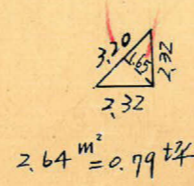 3.20
1.65
2.32
2.32
2.64 m² = 0.79 坪